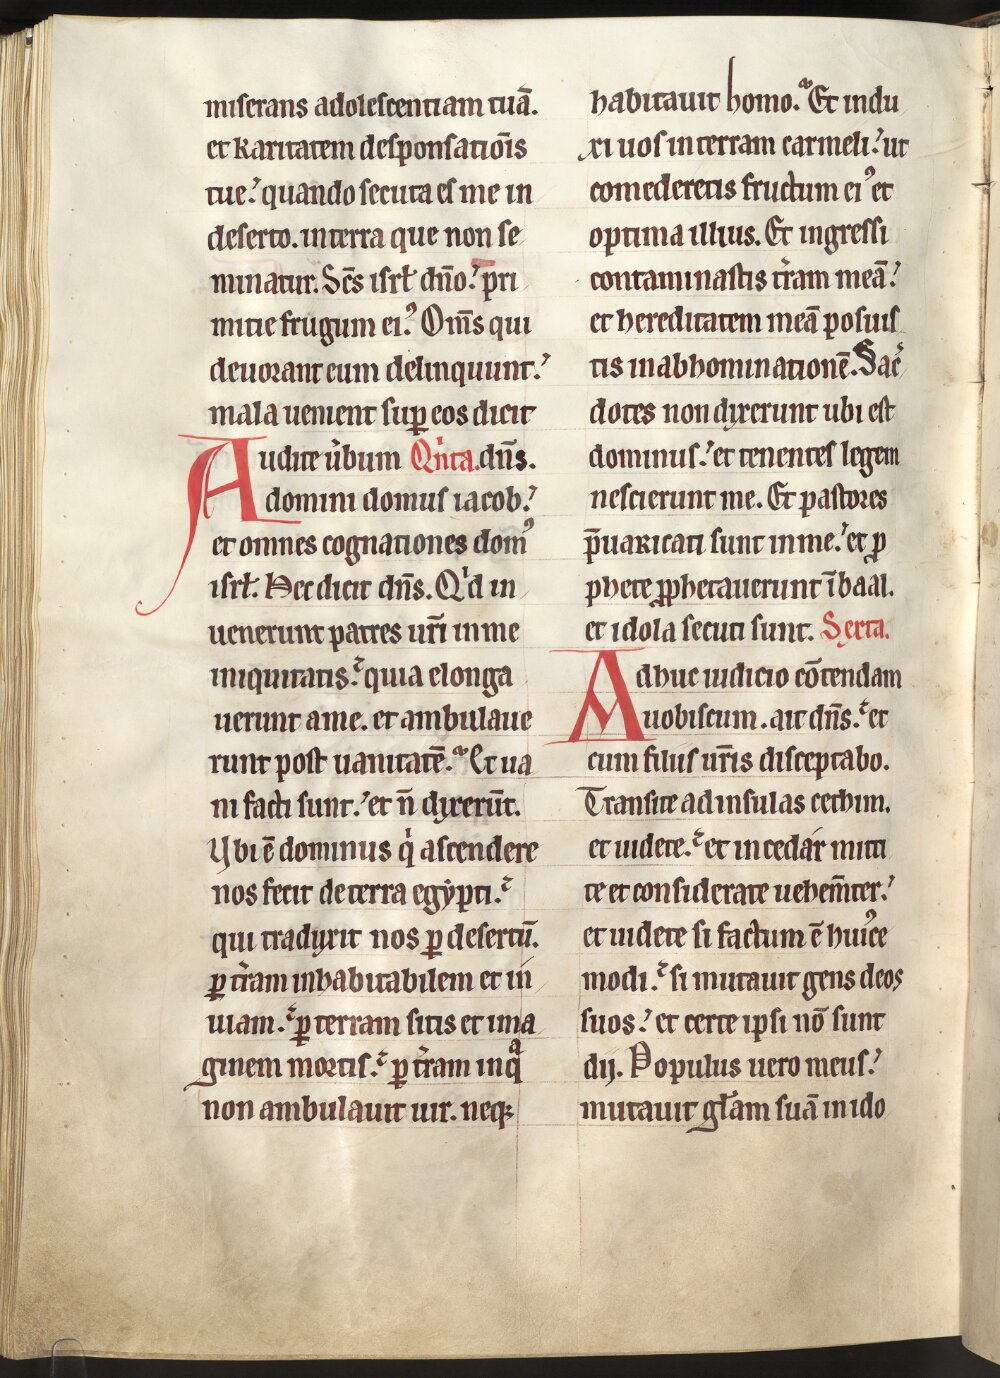 miserans adolescentiam tuā.
et karitatem desponsatiōis
tue. quando secuta es me in
deserto. in terra que non se
minatur. Sc̄s isrł dn̄o. p̄ri
mitie frugum eiꝰ. Om̄s qui
deuorant eum delinquunt.
mala uenient suꝑ eos dicit
dn̄s. Qͥnta.
Audite u̓bum
domini domus iacob.
et omnes cognationes domꝰ
isrł. Hec dicit dn̄s. Qͥd in
uenerunt patres ur̄i in me
iniqͥtatis. quia elonga
uerunt a me. et ambulaue
runt post uanitatē. Et ua
ni facti sunt. et n̄ dixerūt.
Vbi ē dominus qͥ ascendere
nos fecit de terra egẏpti.
qui traduxit nos ꝑ desertū.
ꝑ tr̄am inhabitabilem et in
uiam. ꝑ terram sitis et ima
ginem mortis. ꝑ tr̄am in qͣ
non ambulauit uir. neqꝫ
habitauit homo. Et indu
xi uos in terram carmeli. ut
comederetis fructum eiꝰ et
optima illius. Et ingressi
contaminastis tr̄am meā.
et hereditatem meā posuis
tis in abhominationē. Sac̓
dotes non dixerunt ubi est
dominus. et tenentes legem
nescierunt me. Et pastores
p̄uaricati sunt in me. et ꝓ
phete ꝓphetauerunt ī baal.
et idola secuti sunt. Sexta.
Adhuc iudicio cōtendam
uobiscum. ait dn̄s. et
cum filiis ur̄is disceptabo.
Transite ad insulas cethim.
et uidete. et in cedár mitti
te et considerate uehem̄ter.
et uidete si factum ē huiꝰce
modi. si mutauit gens deos
suos. et certe ipsi nō sunt
dij. Populus uero meus.
mutauit głam suā in ido